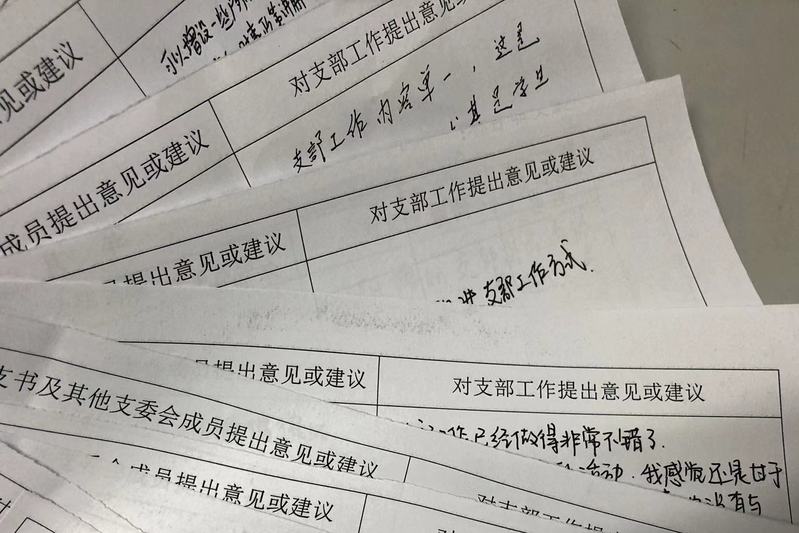 可以增设一些
见或建议
对支部工作提出意见或建议
支部工作内容单一，这是
其是学生
成员提出意见或建议
对支部工作提出意见或建议
成员提出意见或建议
支部工作方式.
员提出意见或建议
对支部工作提出意见或建议
工作已经做得非常不错了.
活动.我感觉还是甘于
没有与
支书及其他支委会成员提出意见或建议
对支部工作
委会成员提出意见或建议
对支部工